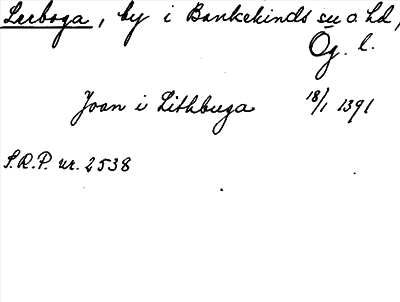 Lerboga, by i Bankekinds su o hd,
Ög. l.
Joan i Lithbuga 18/1 1391
S.R.P. nr. 2538